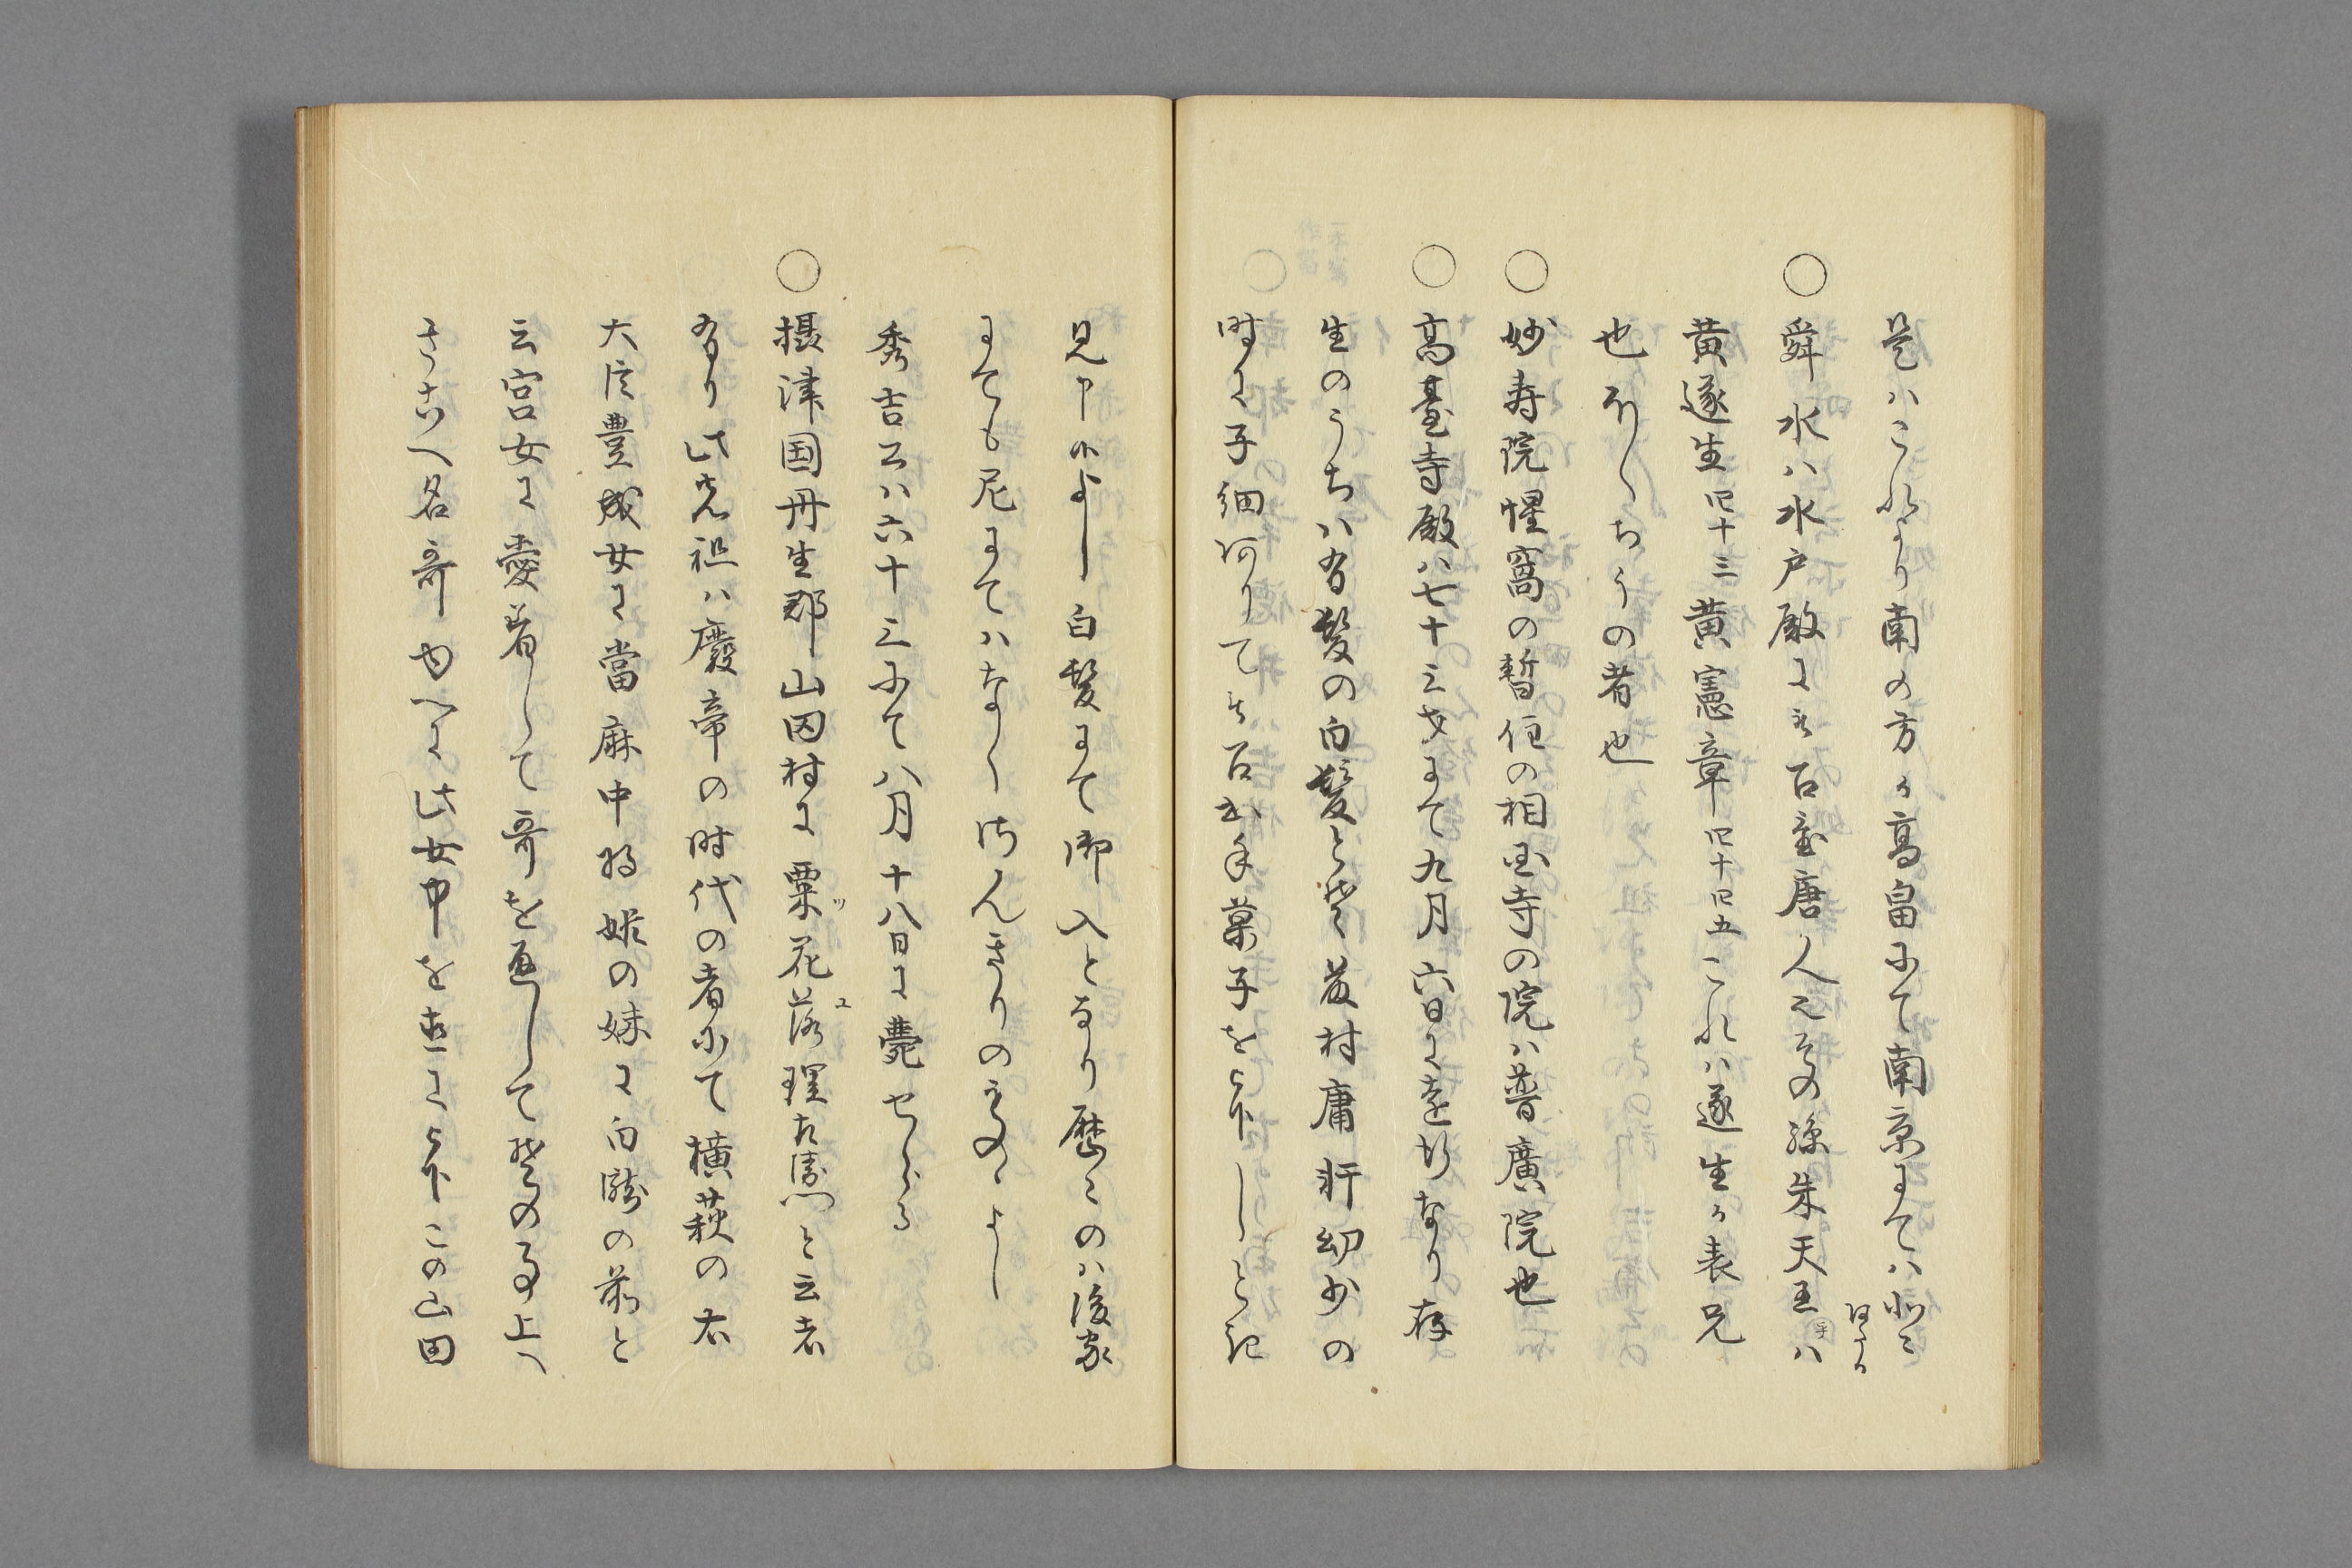 是ハこれより南の方か高畠にて南京にてハ北ミ
○舜水ハ水戸殿に被召置唐人也その孫朱天王ハ
黄遂生四十三黄憲章四十四五これハ遂生か表兄
也何もちうの者也
○妙寿院惺窩の暫住の相国寺の院ハ普廣院也
○高臺寺殿ハ七十三才にて九月六日に逝去なり存
生のうちハ有髪の白髪と也 薮村庸軒幼少の
時に子細ありて被召出手菓子を被下しと記
見申候よし白髪にて御入となり歴々の後家
にても尼にてハなくけんきりのまゝよし
秀吉公ハ六十三にて八月十八日に薨せらる
○摂津国丹生郡山田村に粟花落理左衛門と云者
有り此先祖ハ廢帝の時代の者にて横萩の右
大臣豊成女に當麻中将姫の妹に白瀧の前と
云宮女に愛着して哥を通してその事上へ
きこへ名哥ゆへに此女中を直に被下この山田